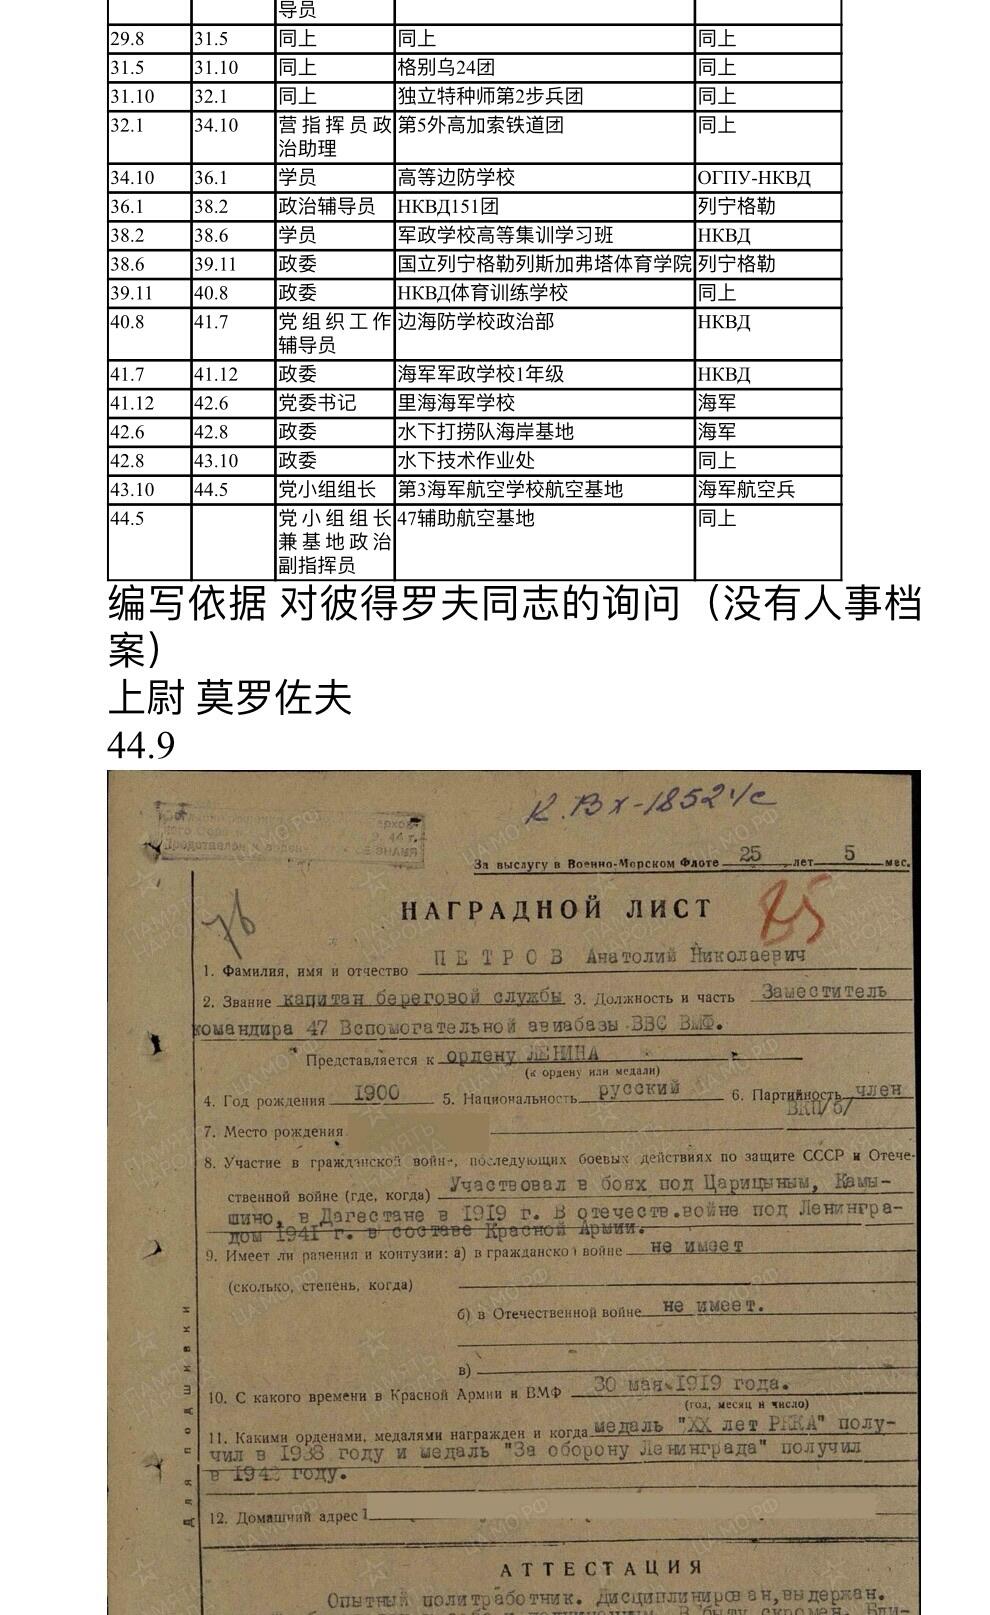 导员
29.8 31.5 同上 同上 同上
31.5 31.10 同上 格别乌24团 同上
31.10 32.1 同上 独立特种师第2步兵团 同上
32.1 34.10 营指挥员政 第5外高加索铁道团 同上
治助理
34.10 36.1 学员 高等边防学校 ОГПУ-НКВД
36.1 38.2 政治辅导员 НКВД151团 列宁格勒
38.2 38.6 学员 军政学校高等集训学习班 НКВД
38.6 39.11 政委 国立列宁格勒列斯加弗塔体育学院 列宁格勒
39.11 40.8 政委 НКВД体育训练学校 同上
40.8 41.7 党组织工作 边海防学校政治部 НКВД
辅导员
41.7 41.12 政委 海军军政学校1年级 НКВД
41.12 42.6 党委书记 里海海军学校 海军
42.6 42.8 政委 水下打捞队海岸基地 海军
42.8 43.10 政委 水下技术作业处 同上
43.10 44.5 党小组组长 第3海军航空学校航空基地 海军航空兵
44.5 党小组组长 47辅助航空基地 同上
兼基地政治
副指挥员
编写依据 对彼得罗夫同志的询问（没有人事档
案）
上尉 莫罗佐夫
44.9
К.Вх-1852ч/с
За выслугу в Военно-Морском Флоте 25 лет 5 мес.
НАГРАДНОЙ ЛИСТ
1. Фамилия, имя и отчество ПЕТРОВ Анатолий Николаевич
2. Звание капитан береговой службы 3. Должность и часть Заместитель
командира 47 Вспомогательной авиабазы ВВС ВМФ.
Представляется к ордену ЛЕНИНА
(к ордену или медали)
4. Год рождения 1900 5. Национальность русский 6. Партийность член
ВКП/б/
7. Место рождения
8. Участие в гражданской войне, последующих боевых действиях по защите СССР и Отече-
ственной войне (где, когда) Участвовал в боях под Царицыным, Камы-
шино, в Дагестане в 1919 г. В отечеств.войне под Ленингра-
дом 1941 г. в составе Красной Армии.
9. Имеет ли ранения и контузии: а) в гражданской войне не имеет
(сколько, степень, когда)
б) в Отечественной войне не имеет.
в)
10. С какого времени в Красной Армии и ВМФ 30 мая 1919 года.
(год, месяц и число)
11. Какими орденами, медалями награжден и когда медаль "XX лет РККА" полу-
чил в 1938 году и медаль "За оборону Ленинграда" получил
в 1943 году.
12. Домашний адрес
Для подшивки
АТТЕСТАЦИЯ
Опытный политработник. Дисциплинирован, выдержан.